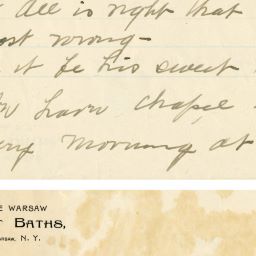 All is right that
ost wrong-
it be his sweet
have chapel
ery morning at
E WARSAW
T BATHS,
ARSAW, N. Y.